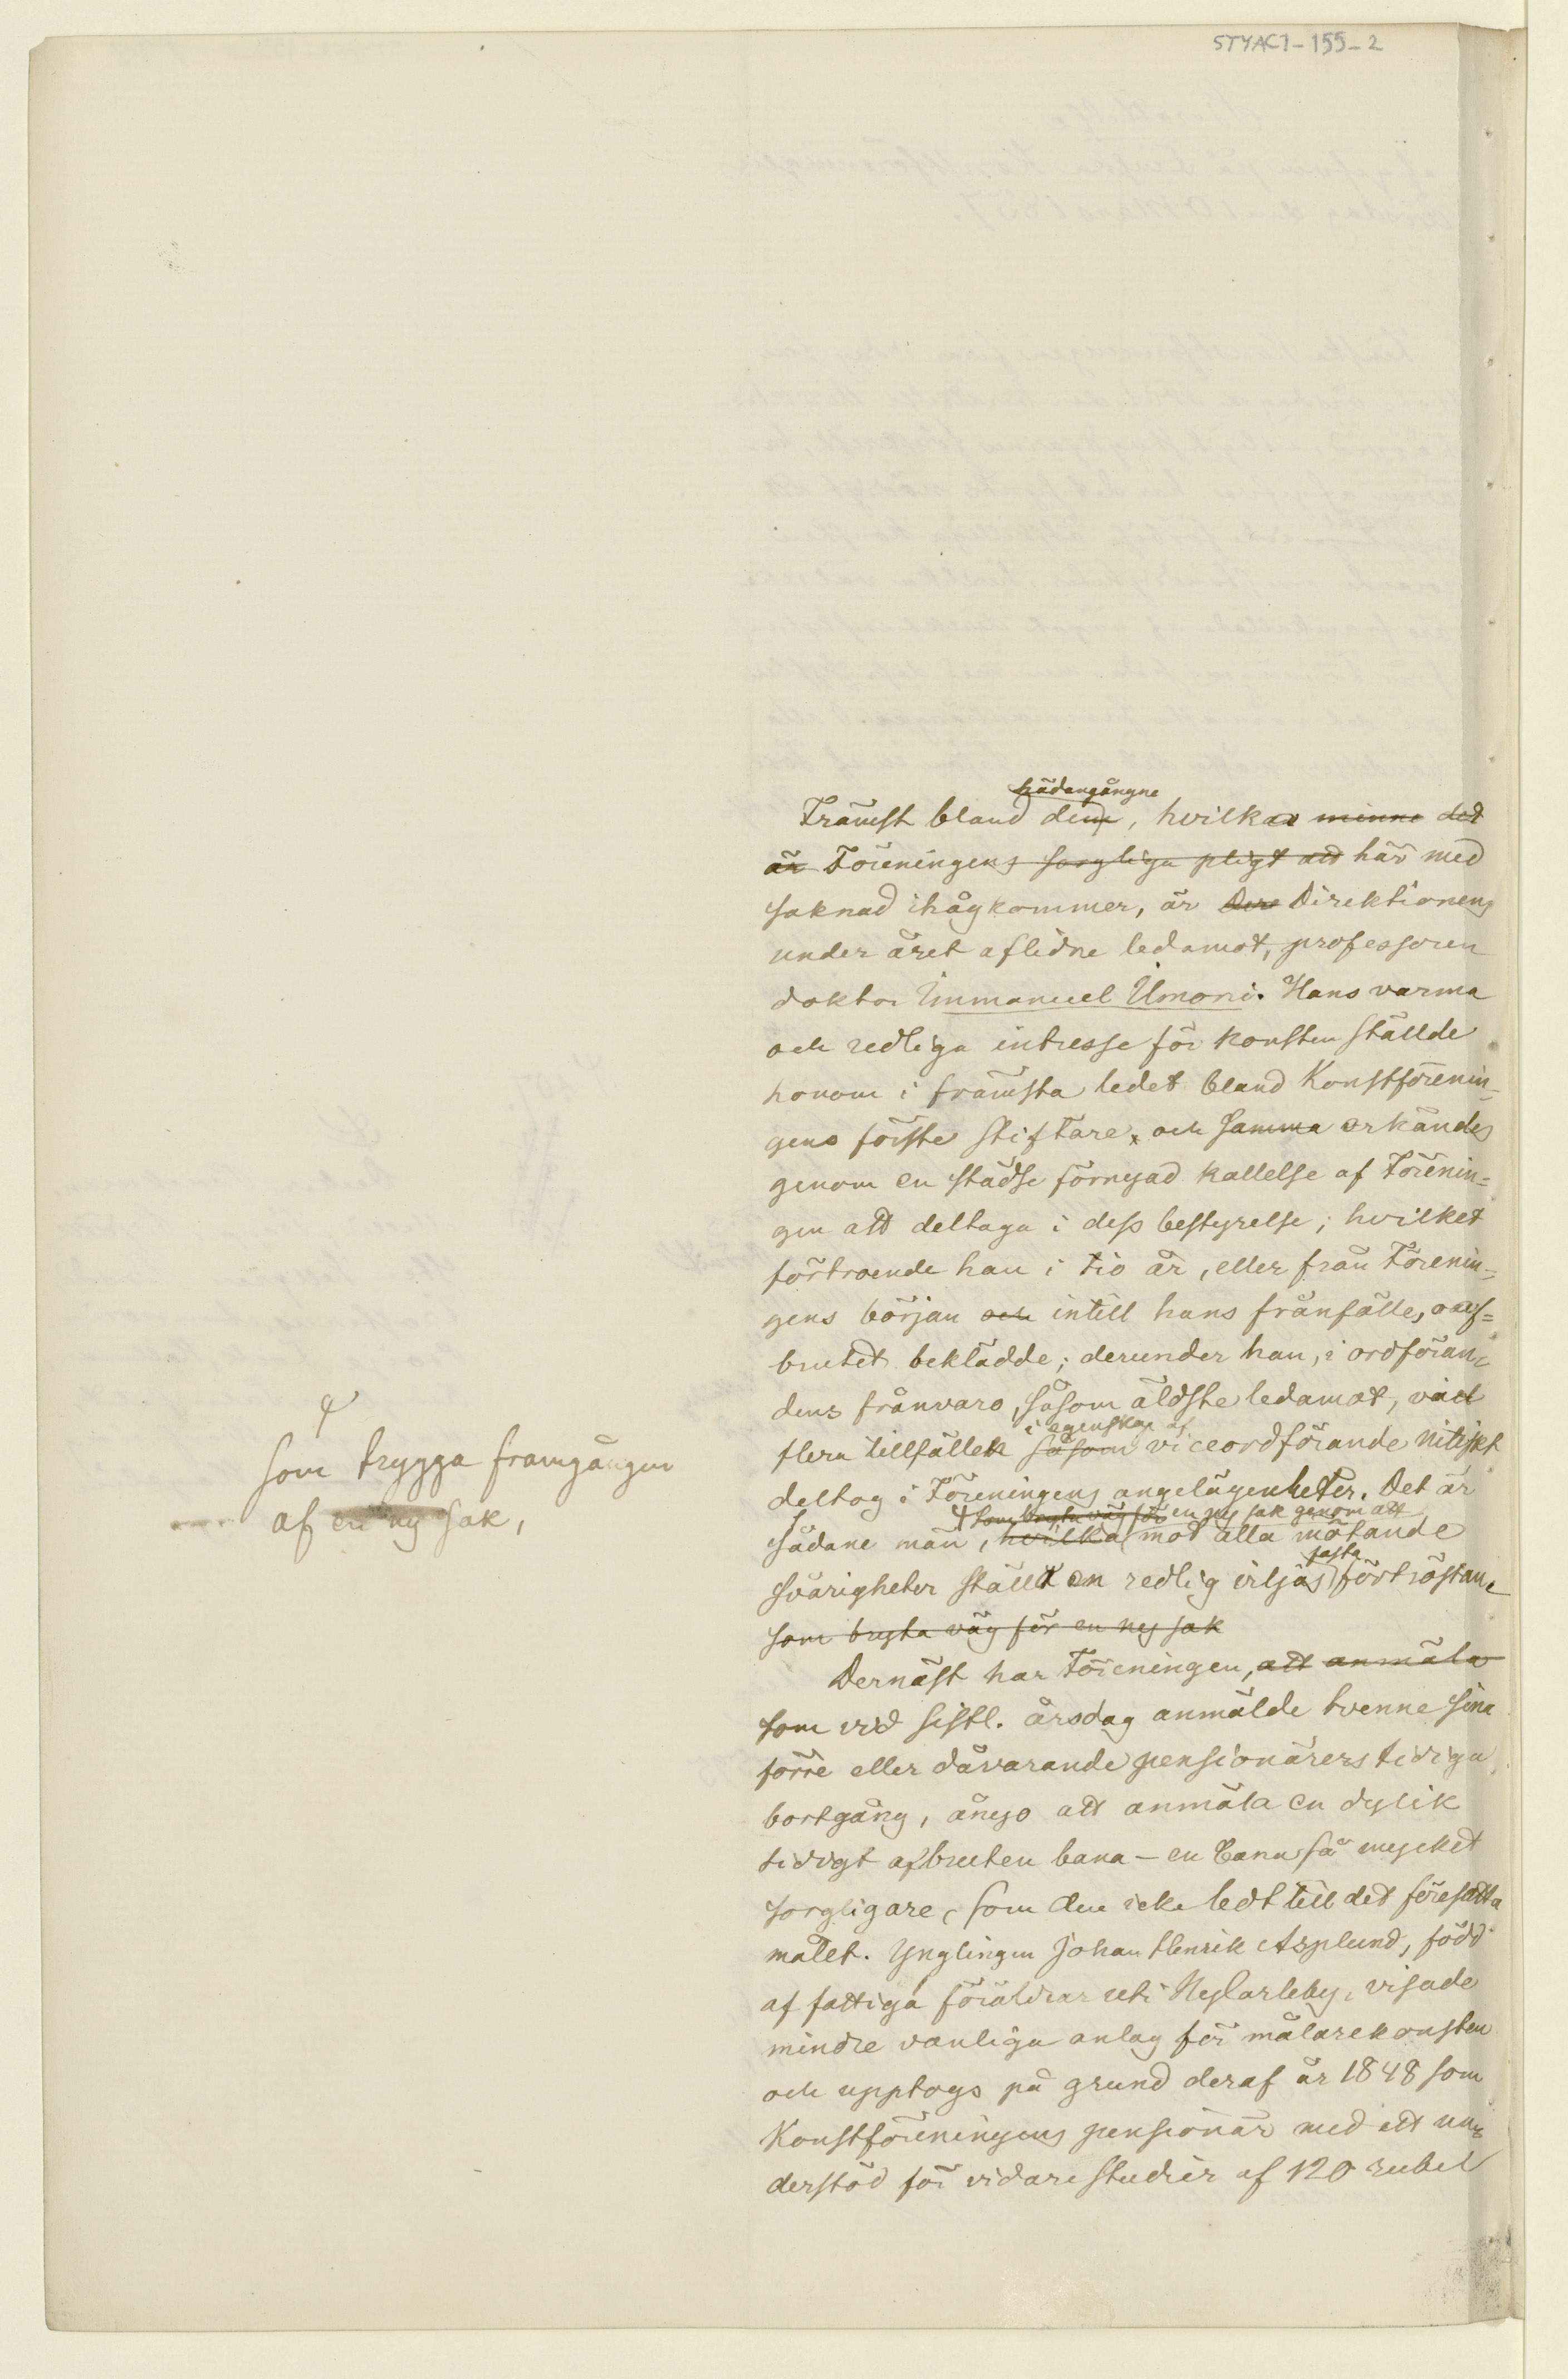 STYAC1-155-2
hädangångne
Främst bland dem, hvilka minne det
är Föreningens sorgliga pligt att här med
saknad ihågkommer, är Dire Direktionens
under året aflidne ledamot, professoren
doktor Immanuel Ilmoni. Hans varma
och redliga intresse för konsten ställde
honom i främsta ledet bland Konstförenin-
gens förste stiftare, och samma erkändes
genom en städse förnyad kallelse af Förenin=
gen att deltaga i dess bestyrelse; hvilket
förtroende han i tio år, eller från Förenin-
gens början och intill hans frånfälle, oaf=
brutet beklädde; derunder han, i ordföran-
dens frånvaro, såsom äldste ledamot, vid
i egenskap af
flera tillfällen såsom viceordförande nitiskt
deltog i Föreningens angelägenheter. Det är
som bryta väg för en ny sak genom att
sådane män, hvilka mot alla mötande
fasta
svårigheter ställt en redlig viljas förtröstan
som bryta väg för en ny sak
som trygga framgången
af en ny sak,
Dernäst har Föreningen, att anmäla
som vid sistl. årsdag anmälde tvenne sina
förre eller dåvarande pensionärers tidiga
bortgång, ånyo att anmäla en dylik
tidigt afbruten bana – en bana så mycket
sorgligare, som den icke ledt till det föresatta
målet. Ynglingen Johan Henrik Asplund, född
af fattiga föräldrar uti Nykarleby, visade
mindre vanliga anlag för målarekonsten
och upptogs på grund deraf år 1848 som
Konstföreningens pensionär med ett un-
derstöd för vidare studier af 120 rubel